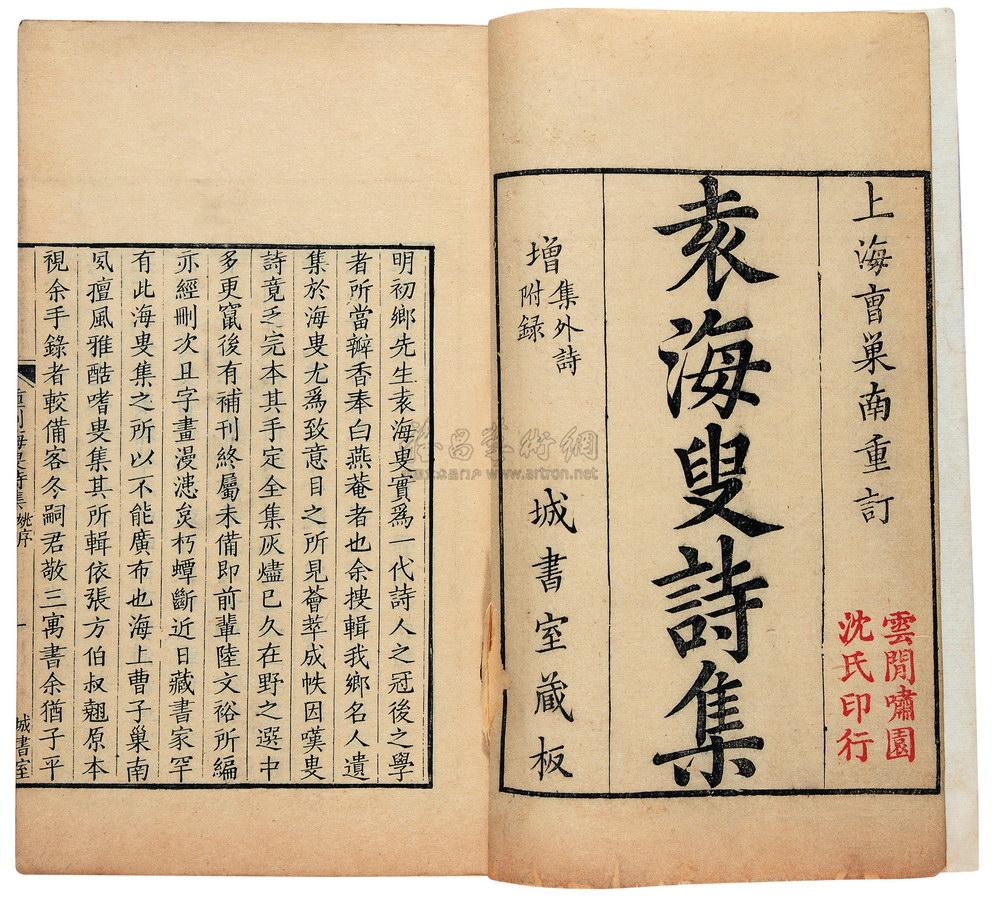 上海曺巢南重訂
袁海叟詩集
增集外詩
附録
城書室蔵板
雲間嘯園
沈氏印行
明初鄉先生袁海叟實爲一代詩人之冠後之學
者所當瓣香奉白燕菴者也余搜輯我鄉名人遺
集於海叟尤爲致意目之所見薈萃成帙因嘆叟
詩竟乏完本其手定全集灰燼已久在野之選中
多更竄後有補刊終屬未備即前輩陸文裕所編
亦經刪次且字畫漫漶炱朽蟫斷近日藏書家罕
有此海叟集之所以不能廣布也海上曹子巢南
夙擅風雅酷嗜叟集其所輯依張方伯叔翹原本
視余手錄者較備客冬嗣君敬三寓書余猶子平
重刊海叟詩集 姚序
一
城書室
www.artron.net